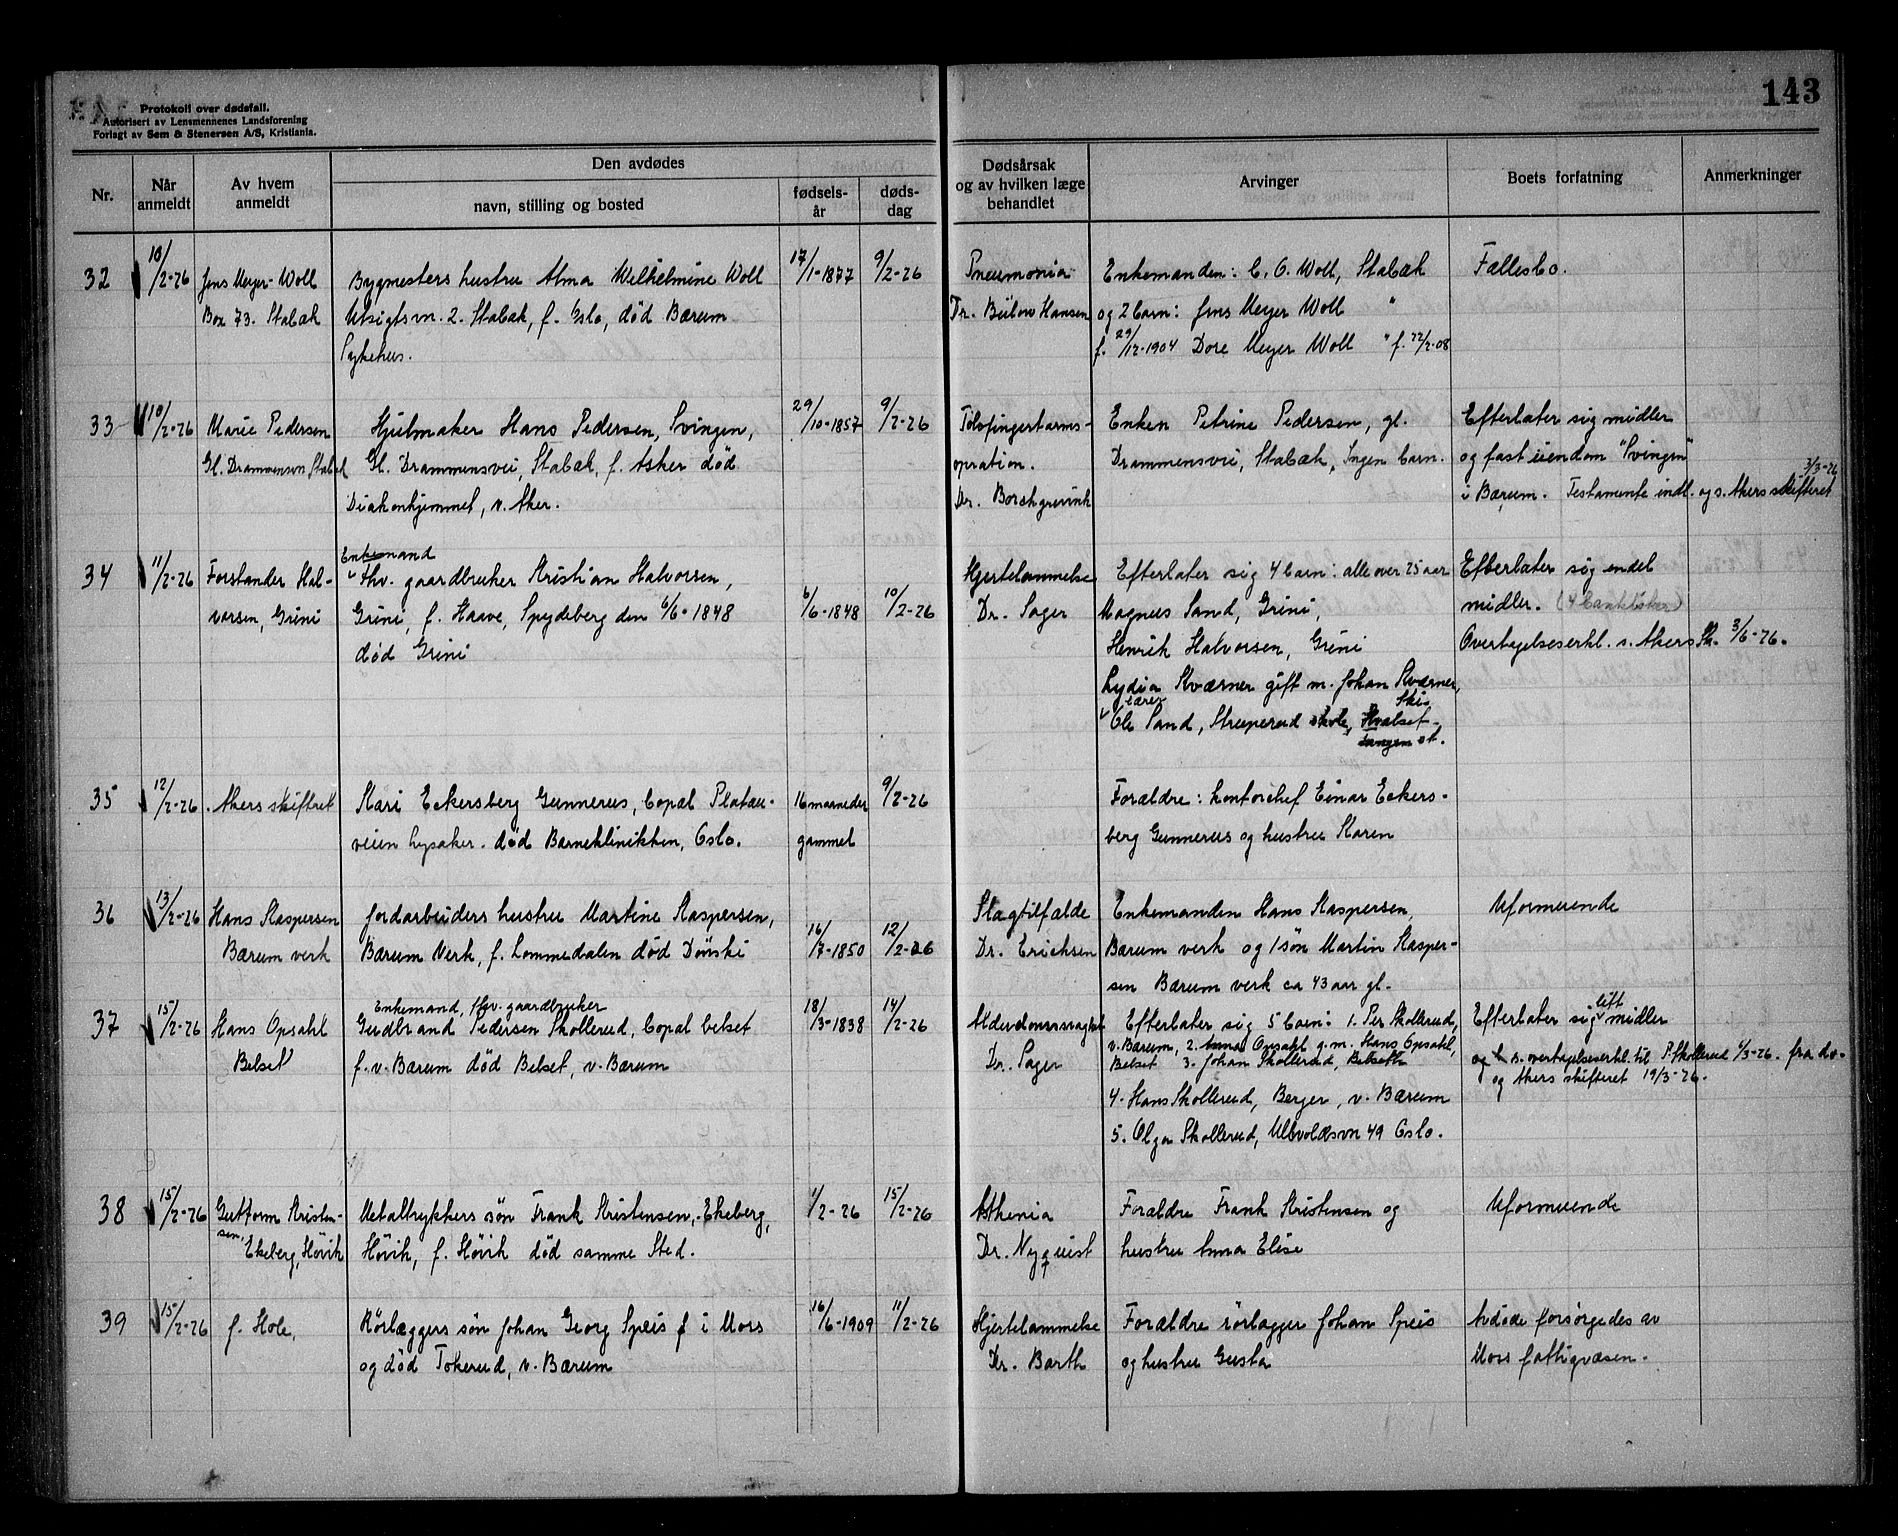 143
Protokoll over dødsfall.
Autorisert av Lensmennenes Landsforening
Forlagt av Sem & Stenersen A/S, Kristiania.
Nr.
Når anmeldt
Av hvem anmeldt
Den avdødes
navn, stilling og bosted
fødsels-år
døds-dag
Dødsårsak og av hvilken læge behandlet
Arvinger
Boets forfatning
Anmerkninger
32
10/2-26
Jens Meyer-Woll
Box 73. Stabæk
Bygmesters hustru Alma Wilhelmine Woll
Utsigtsvn. 2. Stabæk, f. Oslo, død Bærum
Sykehus.
17/1-1877
9/2-26
Pneumonia
Dr. Bülow Hansen
Enkemanden: C. O. Woll, Stabæk
og 2 barn: Jens Meyer Woll "
f. 29/12-1904 Dore Meyer Woll " f. 22/2-08
Fællesbo.
33
10/2-26
Marie Pedersen
Gl. Drammensvn Stabæk
Hjulmaker Hans Pedersen, Svingen,
Gl. Drammensvei, Stabæk, f. Asker død
Diakonhjemmet, v. Aker.
29/10-1857
9/2-26
Tolvfingertarms-
opration.
Dr. Borchgrevink
Enken Petrine Pedersen, gl.
Drammensvei, Stabæk, Ingen barn.
Efterlater sig midler
og fast eiendom "Svingen"
i Bærum. Testamente indl. og s. Akers skifteret 3/3-26
34
11/2-26
Forstander Hal-
vorsen, Grini
Enkemand
Fhv. gaardbruker Kristian Halvorsen,
Grini, f. Haave, Spydeberg den 6/6-1848
død Grini
6/6-1848
10/2-26
Hjertelammelse
Dr. Sager
Efterlater sig 4 barn: alle over 25 aar
Magnus Sand, Grini,
Henrik Halvorsen, Grini
Lydia Kværner gift m. Johan Kværner,
Ski
lærer
Ole Sand, Struperud skole, Kralset-
tangen st.
Efterlater sig endel
midler. (4 bankbøker)
Overtagelseserkl. s. Akers Sk. 3/6-26.
35
12/2-26
Akers skifteret
Kari Eckersberg Gunnerus, Copal Platau-
veien Lysaker. død Barneklinikken, Oslo.
16 maaneder
gammel
9/2-26
Forældre: Kontorchef Einar Eckers-
berg Gunnerus og hustru Karen
36
13/2-26
Hans Kaspersen
Bærum verk
Jordarbeiders hustru Martine Kaspersen,
Bærum Verk, f. Lommedalen død Dønski
16/7-1850
12/2-26
Slagtilfælde
Dr. Erichsen
Enkemanden Hans Kaspersen,
Bærum verk og 1 søn Martin Kasper-
sen Bærum verk ca 43 aar gl.
Uformuende
37
15/2-26
Hans Opsahl
Belset
Enkemand, fhv. gaardbruker
Gudbrand Pedersen Skollerud, Copal belset
f. v. Bærum død Belset, v. Bærum
18/3-1838
14/2-26
Alderdomssvaghet
Dr. Sager
Efterlater sig 5 barn: 1. Per Skollerud,
v. Bærum, 2. Anna Opsahl g. m. Hans Opsahl,
Belset 3. Johan Skollerud, Belseth
4. Hans Skollerud, Berger, v. Bærum
5. Olga Skollerud, Ullevoldsvn 49 Oslo.
Efterlater sig litt midler
og s. overtagelseserkl. til P. Skollerud 1/3-26. fra do.
og Akers skifteret 19/3-26.
38
15/2-26
Guttorm Kristen-
sen,
Ekeberg, Høvik
Metaltrykkers søn Frank Kristensen, Ekeberg,
Høvik, f. Høvik død samme Sted.
1/2-26
15/2-26
Asthenia
Dr. Nyquist
Forældre Frank Kristensen og
hustru Anna Elise
Uformuende
39
15/2-26
f. Hole,
Rørlæggers søn Johan Georg Speis f i Moss
og død Tokerud, v. Bærum
16/6-1909
11/2-26
Hjertelammelse
Dr. Barth
Forældre rørlægger Johan Speis
og hustru Gusta
Avdøde forsørgedes av
Moss fattigvæsen.